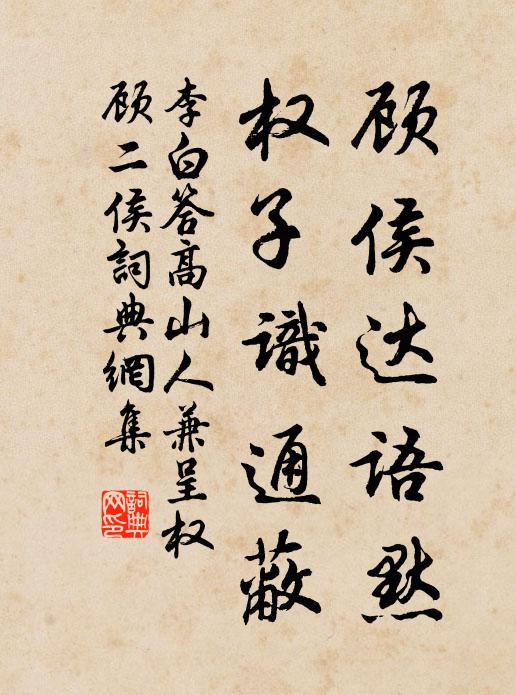 顾侯达语默
权子識通蔽
李白答高山人兼呈权
顾二侯詞典網集
詞典网印